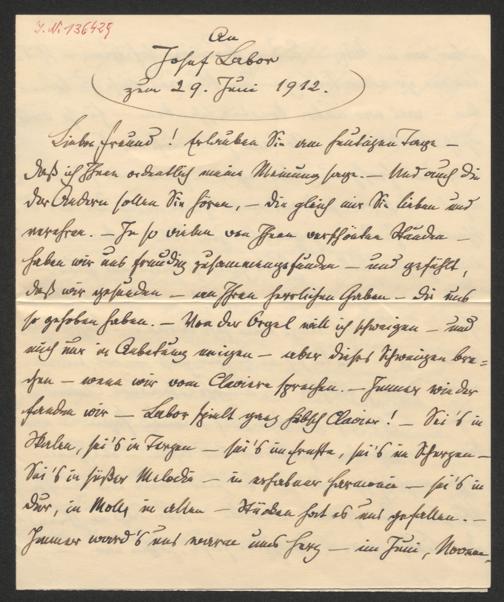 J. N. 136429
An
Josef Labor
zum 29. Juni 1912.
Lieber Freund! Erlauben Sie am heutigen Tage –
daß ich Ihnen ordentlich meine Meinung sage. – Und auch die
der Andern sollen Sie hören, – die gleich mir Sie lieben und
verehren. – In so vielen von Ihnen verschönten Stunden –
haben wir uns freudig zusammengefunden – und gefühlt,
daß wir gesunden – an Ihren herrlichen Gaben – die uns
so gehoben haben. – Von der Orgel will ich schweigen – und
mich nur in Anbetung neigen – aber dieses Schweigen bre=
chen – wenn wir vom Claviere sprechen. – Immer wieder
fanden wir – Labor spielt ganz hübsch Clavier! – Sei's in
Skalen, sei's in Terzen – sei's im Ernste, sei's im Scherzen –
Sei's in süßer Melodie – in erhabner Harmonie – sei's in
Dur, in Moll, in allen – Stücken hat es uns gefallen. –
Immer ward's uns warm ums Herz – im Juni, Novem-